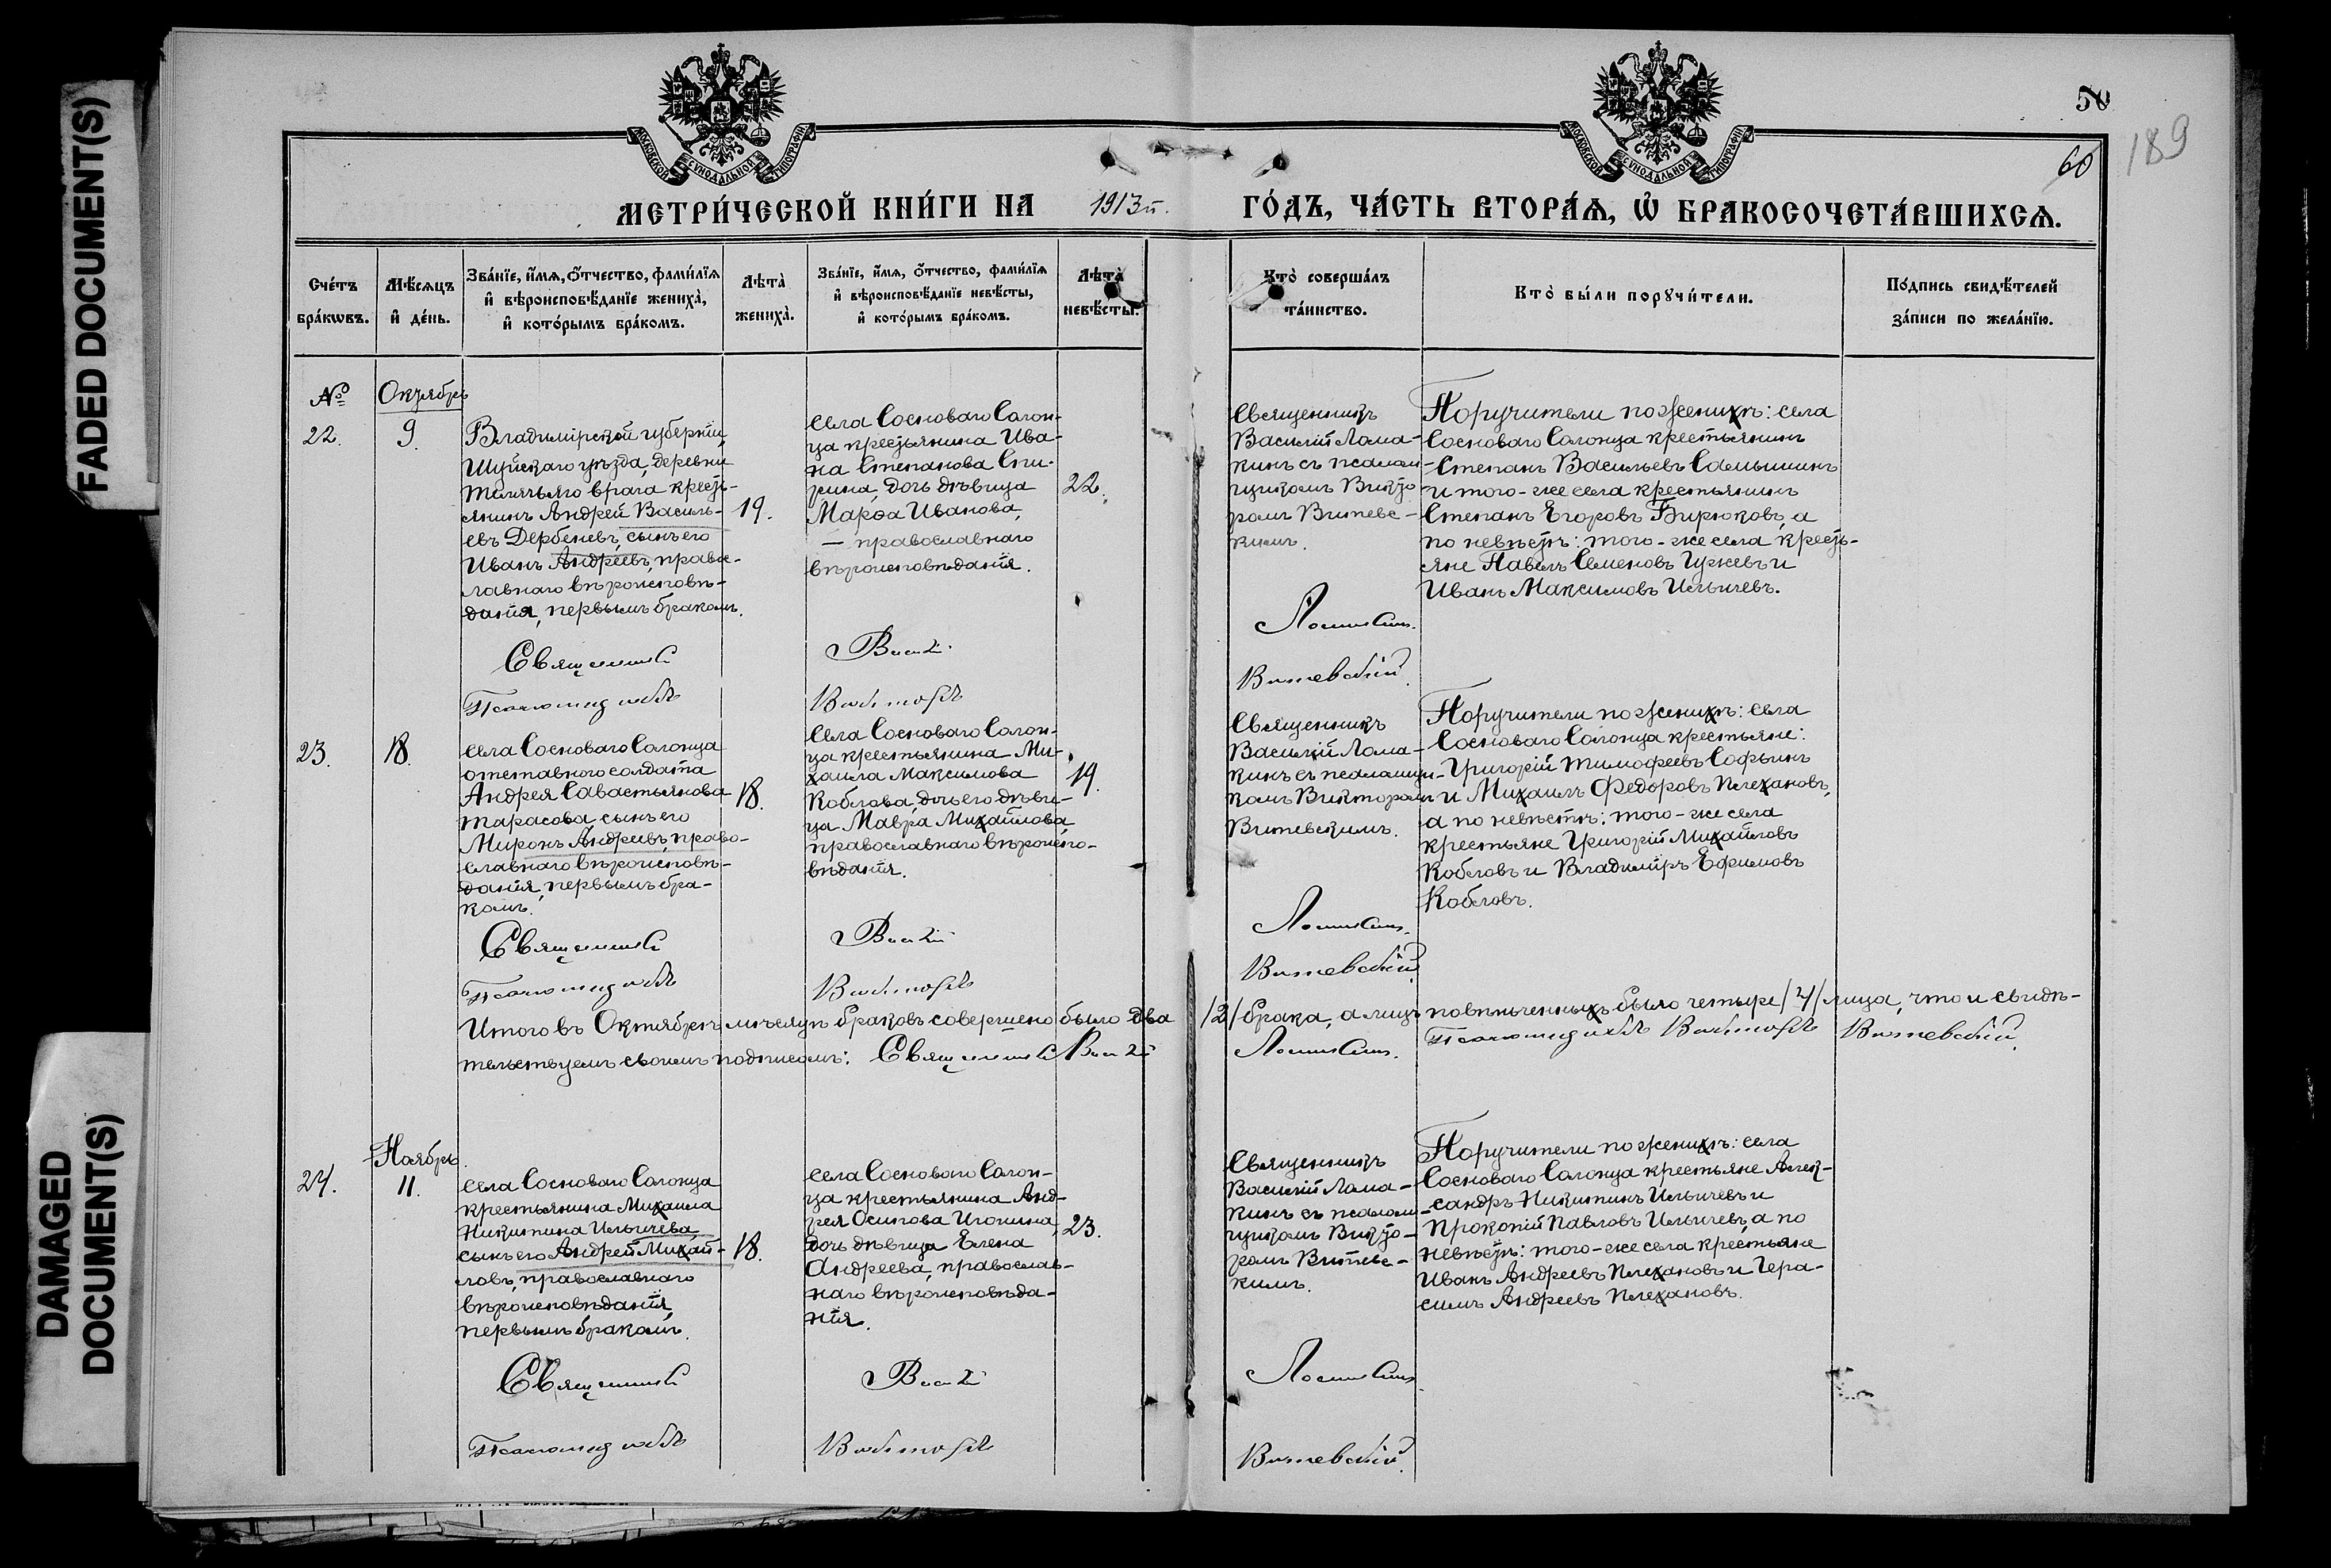 FADED DOCUMENT(S)
DAMAGED
DOCUMENT(S)
МОСКОВСКОЙ СѴНОДАЛЬНОЙ ТИПОГРАФІИ
МОСКОВСКОЙ СѴНОДАЛЬНОЙ ТИПОГРАФІИ
50
60
189
МЕТРИ́ЧЕСКОЙ КНИ́ГИ НА 1913й. ГО́ДЪ, ЧА́СТЬ ВТОРА́Ѧ, Ѡ҆ БРАКОСОЧЕТА́ВШИХСѦ.
Сче́тъ
бра́кѡвъ.
Мѣ́сяцъ
и҆ де́нь.
Зва́нїе, и҆́мя, ѻ҆́тчество, фами́лїя
и҆ вѣроисповѣ́данїе жениха̀,
и҆ кото́рымъ бра́комъ.
Лѣта̀
жениха̀.
Зва́нїе, и҆́мя, ѻ҆́тчество, фами́лїя
и҆ вѣроисповѣ́данїе невѣ́сты,
и҆ кото́рымъ бра́комъ.
Лѣта̀
невѣ́сты.
Кто̀ соверша́лъ
та́инство.
Кто̀ бы́ли порꙋчи́тели.
По́дпись свидѣ́телей
за́писи по жела́нїю.
№
22.
Октябрь
9.
Владимірской губерніи,
Шуйскаго уѣзда, деревни
Телячьяго врага кресть-
янинъ Андрей Василь-
евъ Дербеневъ, сынъ его
Иванъ Андреевъ, правос-
лавнаго вѣроисповѣ-
данія, первымъ бракомъ.
19.
села Сосноваго Солон-
ца крестьянина Ива-
на Степанова Спи-
рина, дочь дѣвица
Марѳа Иванова,
— православнаго
вѣроисповѣданія.
22.
Священникъ
Василій Лома-
кинъ съ псалом-
щикомъ Викто-
ромъ Витевс-
кимъ.
Поручители по женихѣ: села
Сосноваго Солонца крестьянинъ
Степанъ Васильевъ Самышинъ
и того-же села крестьянинъ
Степанъ Егоровъ Бирюковъ, а
по невѣстѣ: того-же села кресть-
яне Павелъ Семеновъ Гужевъ и
Иванъ Максимовъ Ильичевъ.
Священникъ Василій Ломакинъ.
Псаломщикъ Викторъ Витевскій.
23.
18.
села Сосноваго Солонца
отставного солдата
Андрея Савастьянова
Тарасова сынъ его
Миронъ Андреевъ, право-
славнаго вѣроисповѣ-
данія, первымъ бра-
комъ.
18.
Села Сосноваго Солон-
ца крестьянина Ми-
хаила Максимова
Коблова, дочь его дѣви-
ца Мавра Михайлова
православнаго вѣроиспо-
вѣданія.
19.
Священникъ
Василій Лома-
кинъ съ псаломщи-
комъ Викторомъ
Витевскимъ.
Поручители по женихѣ: села
Сосноваго Солонца крестьяне:
Григорій Тимофеевъ Софьинъ
и Михаилъ Федоровъ Плехановъ,
а по невѣстѣ: того-же села
крестьяне Григорій Михайловъ
Кобловъ и Владиміръ Ефимовъ
Кобловъ.
Священникъ Василій Ломакинъ.
Псаломщикъ Викторъ Витевскій.
Итого въ Октябрѣ мѣсяцѣ браковъ совершено было два /2/ брака, а лицъ повѣнченныхъ было четыре /4/ лица, что и свидѣ-
тельствуемъ своимъ подписомъ: Священникъ Василій Ломакинъ. Псаломщикъ Викторъ Витевскій.
24.
Ноябрь.
11.
села Сосноваго Солонца
крестьянина Михаила
Никитина Ильичева,
сынъ его Андрей Михай-
ловъ, православнаго
вѣроисповѣданія,
первымъ бракомъ.
18.
села Сосноваго Солон-
ца крестьянина Анд-
рея Осипова Игонина,
дочь дѣвица Елена
Андреева, православ-
наго вѣроисповѣда-
нія.
23.
Священникъ
Василій Лома-
кинъ съ псалом-
щикомъ Викто-
ромъ Витевс-
кимъ.
Поручители по женихѣ: села
Сосноваго Солонца крестьяне Алек-
сандръ Никитинъ Ильичевъ и
Прокопій Павловъ Ильичевъ, а по
невѣстѣ: того-же села крестьяне
Иванъ Андреевъ Плехановъ и Гера-
симъ Андреевъ Плехановъ.
Священникъ Василій Ломакинъ.
Псаломщикъ Викторъ Витевскій.